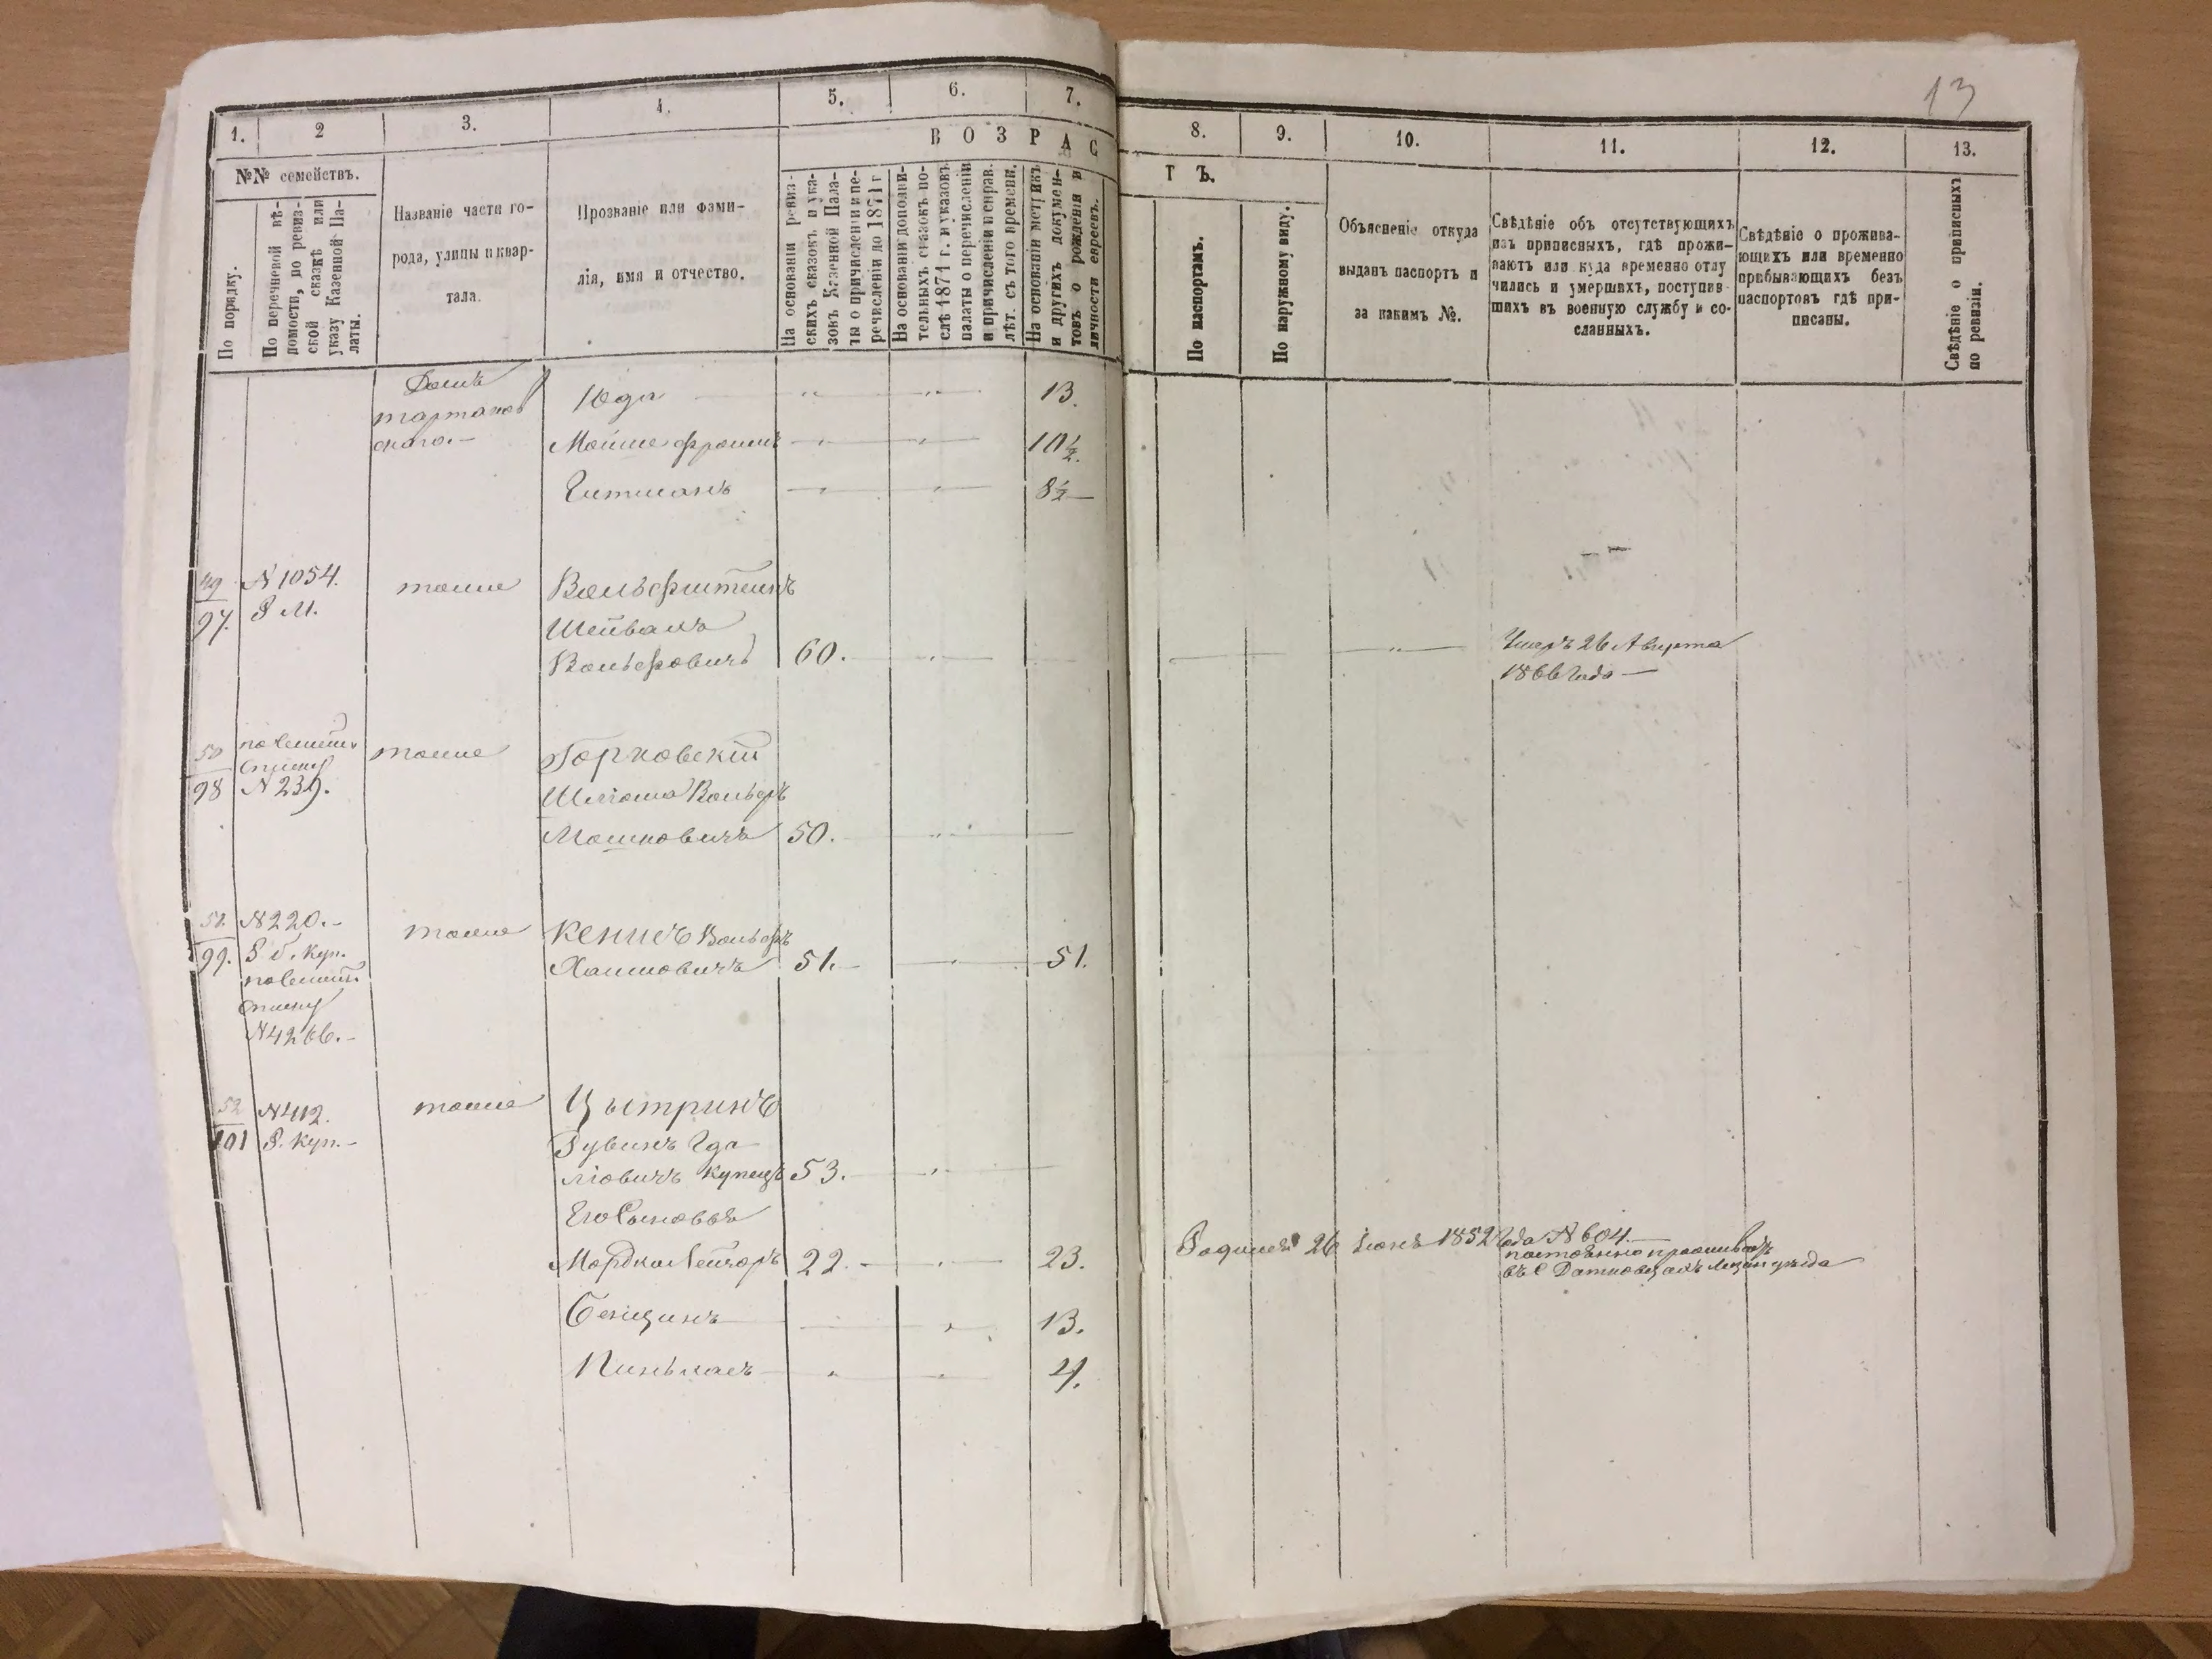 13
1. 2 3. 4. 5. 6. 7. 8. 9. 10. 11. 12. 13.
№№ семействъ.
По порядку.
По перечневой вѣ-
домости, по ревиз-
ской сказкѣ или
указу Казенной Па-
латы.
Названіе части го-
рода, улицы и квар-
тала.
Прозваніе или фами-
лія, имя и отчество.
ВОЗРАСТЪ.
На основаніи ревиз-
скихъ сказокъ и ука-
зовъ Казенной Пала-
ты о причисленіи и пе-
речисленіи до 1871 г
На основаніи дополни-
тельныхъ сказокъ по-
слѣ 1871 г. и указовъ
палаты о перечисленіи
и причисленіи и справ.
лѣт. съ того времени.
На основаніи метрикъ
и другихъ докумен-
товъ о рожденіи и
личности евреевъ.
По паспортамъ.
По наружному виду.
Объясненіе откуда
выданъ паспортъ и
за какимъ №.
Свѣдѣніе объ отсутствующихъ
изъ приписныхъ, гдѣ прожи-
ваютъ или куда временно отлу
чились и умершихъ, поступив-
шихъ въ военную службу и со-
сланныхъ.
Свѣдѣніе о прожива-
ющихъ или временно
пребывающихъ безъ
паспортовъ гдѣ при-
писаны.
Свѣдѣніе о приписныхъ
по ревизіи.
Домъ
Тартаков
скаго.—
Юда — „ — „ — 13.
Мойше Фроимъ — „ — „ — 10½.
Гитманъ — „ — „ — 8½
49/97. N 1054. тоше Вольфштейнъ
Р М.
Шейвахъ
Вольфовичъ 60. — „ — Умеръ 26 Августа
1866 Года —
50/98 тоше Горховскій
списку
N 239. Шліома Вольфъ
Мошковичъ 50. — „ —
51./99. N 220.- тоше Кеншъ Вольфъ
Р б. Куп. Хаимовичъ 51. — „ — 51.
списку
N 4266.-
52/101 N 412. тоше Цытринъ
Р. Куп.- Рувинъ Геда
ліовичъ купецъ 53. — „ —
Его Сыновья
Мордко Лейзоръ 22. — „ — 23. Родился 26 Іюня 1852 Года N 604.—
постоянно прожива
въ С
Бенціинъ — „ — 13.
Пинькасъ — „ — „ — 4.